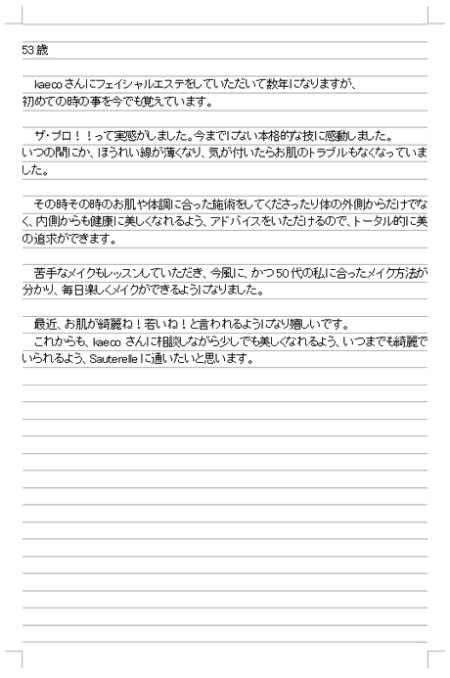 53 歳
kaeco さんにフェイシャルエステをしていただいて数年になりますが、
初めての時の事を今でも覚えています。
ザ・プロ！！って実感がしました。今までにない本格的な技に感動しました。
いつの間にか、ほうれい線が薄くなり、気が付いたらお肌のトラブルもなくなっていま
した。
その時その時のお肌や体調に合った施術をしてくださったり体の外側からだけでな
く、内側からも健康に美しくなれるよう、アドバイスをいただけるので、トータル的に美
の追求ができます。
苦手なメイクもレッスンしていただき、今風に、かつ 50 代の私に合ったメイク方法が
分かり、毎日楽しくメイクができるようになりました。
最近、お肌が綺麗ね！若いね！と言われるようになり嬉しいです。
これからも、kaeco さんに相談しながら少しでも美しくなれるよう、いつまでも綺麗で
いられるよう、Sauterelle に通いたいと思います。